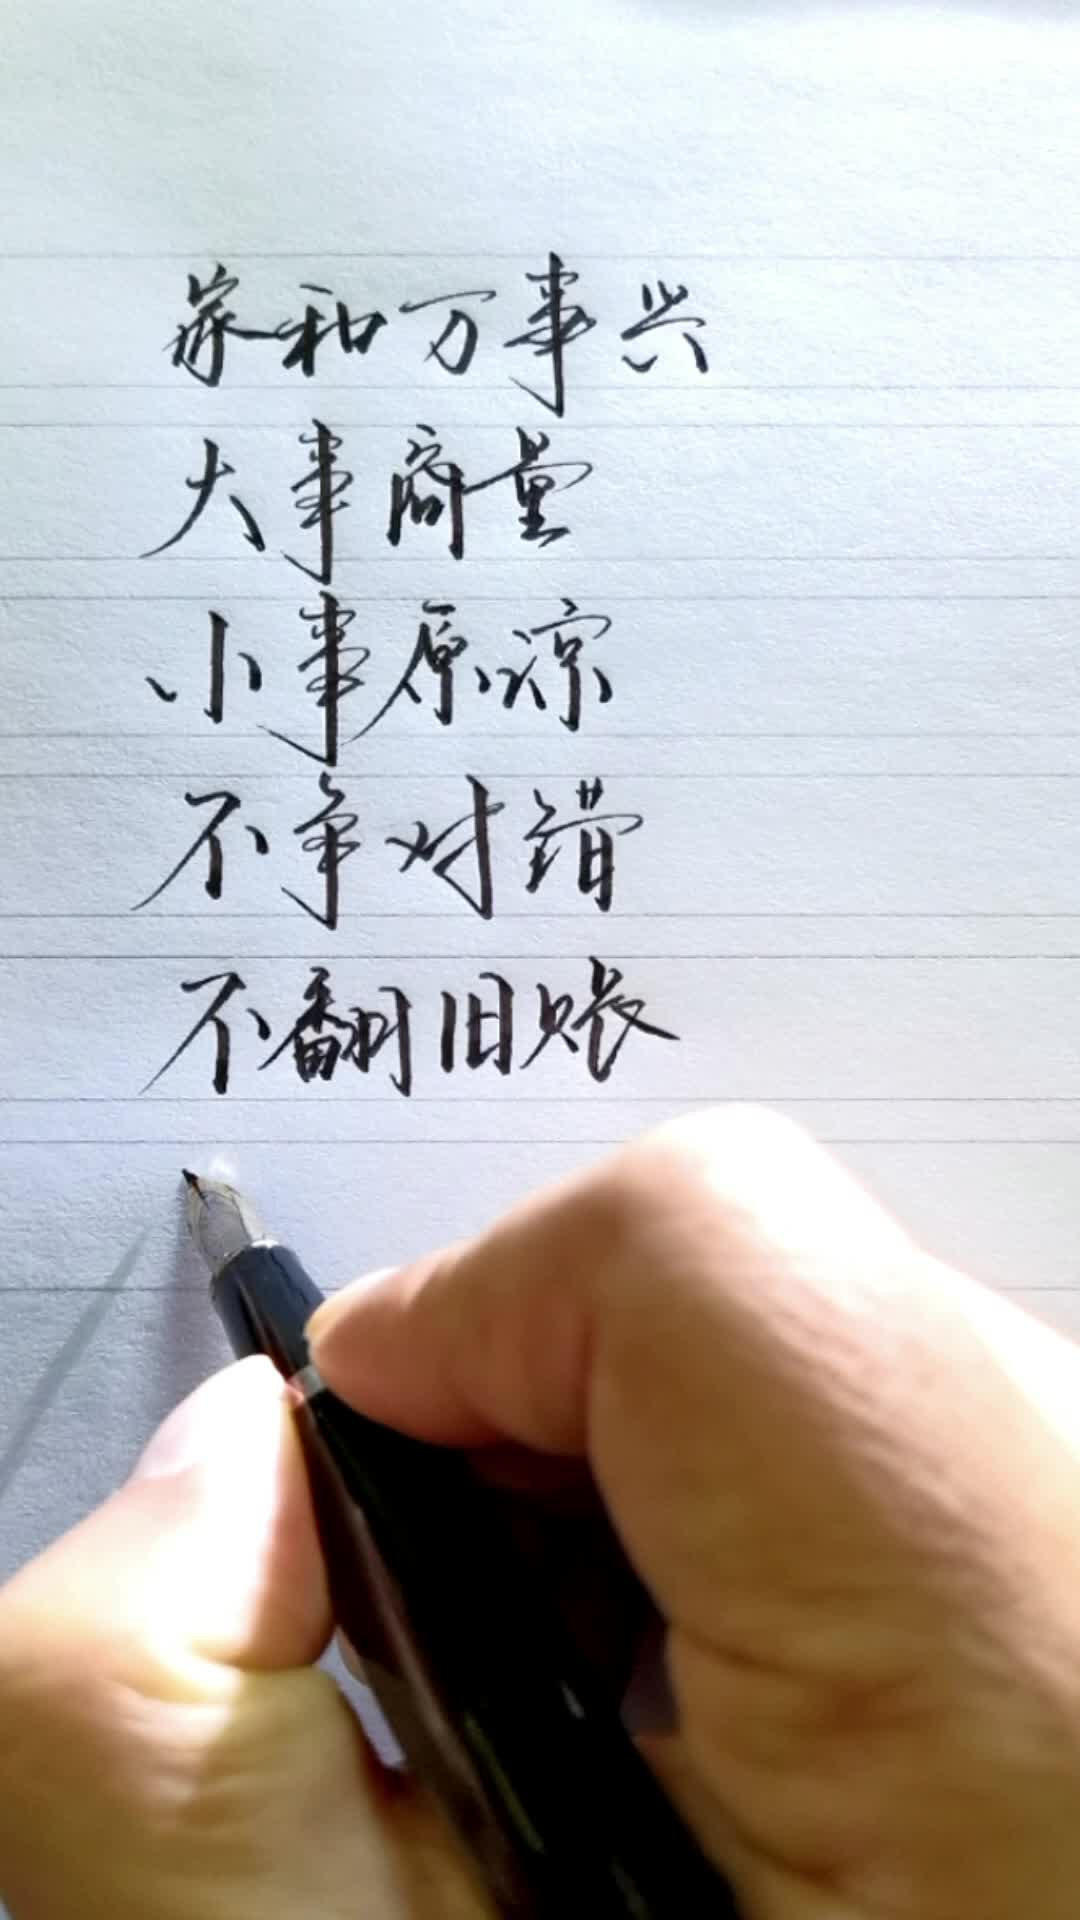 家和万事兴
大事商量
小事原谅
不争对错
不翻旧账